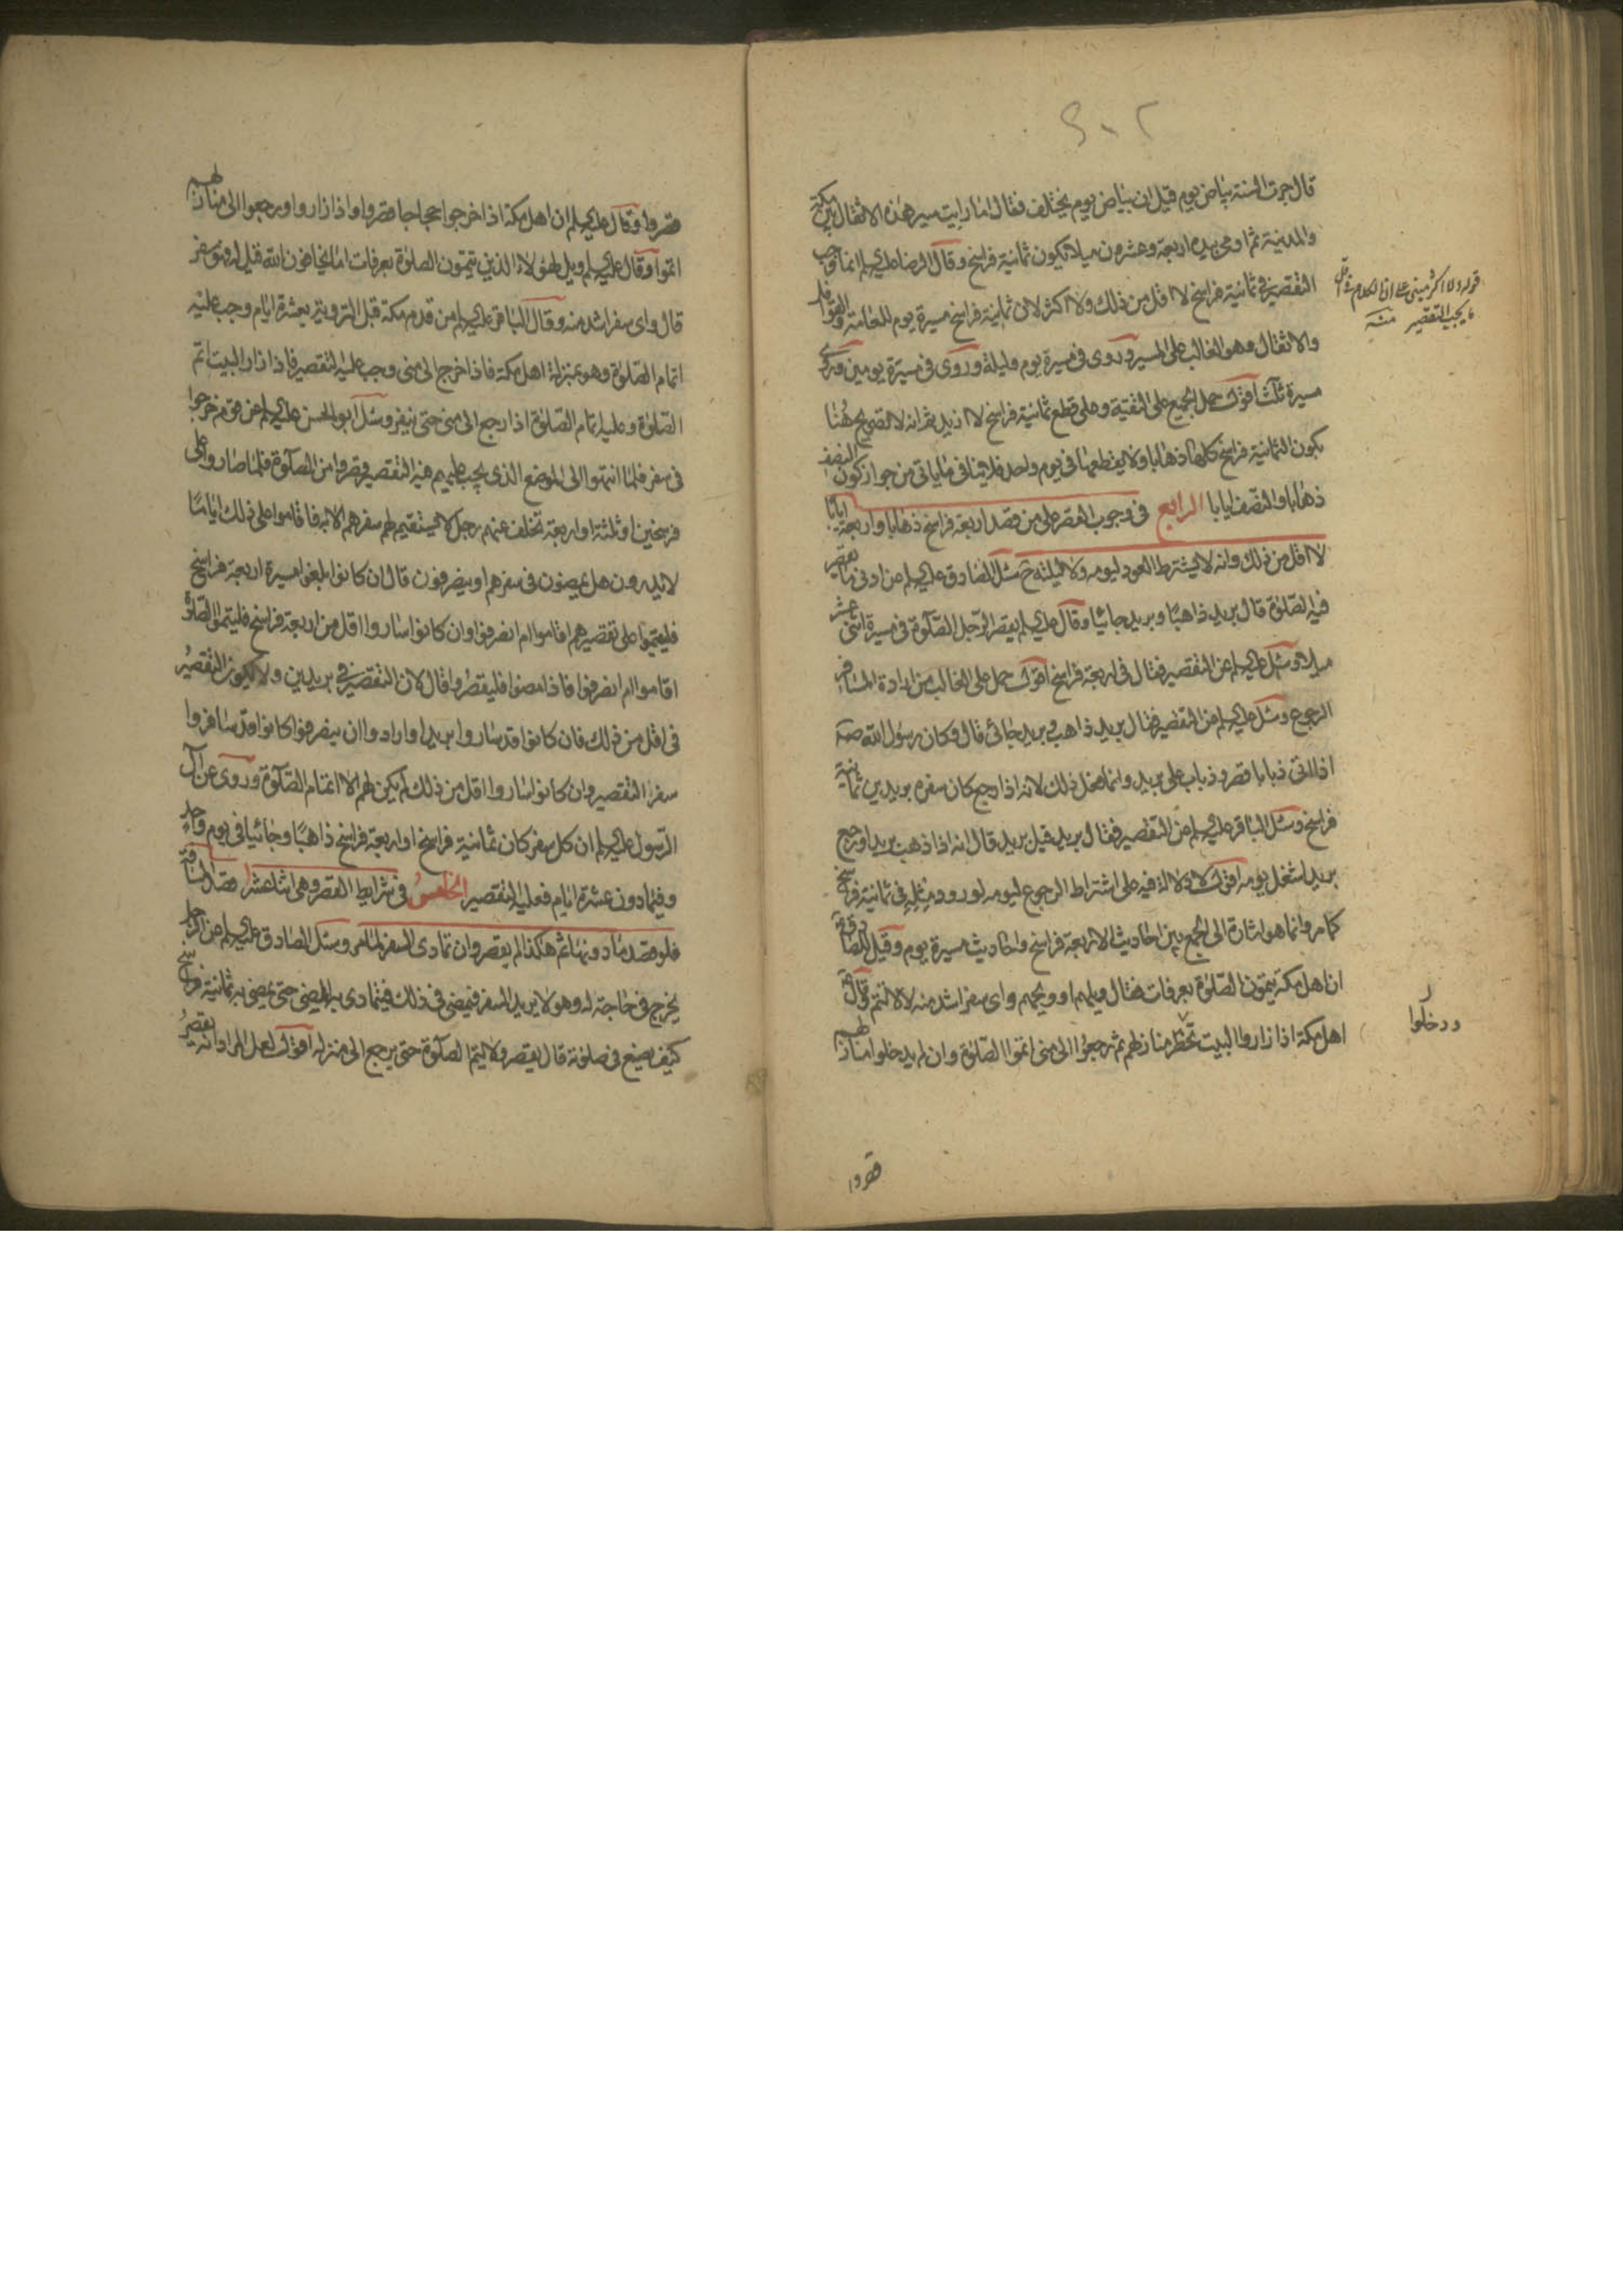 قال جرت السنة ببياض يوم قيل ان بياض يوم يختلف فقال اما رايت سير هذه الاثقال بين مكة
والمدينة ثم اومى بيده اربعة وعشرون ميلا تكون ثمانية فراسخ وقال الرضا عليه السلم انما وجب
التقصير في ثمانية فراسخ لا اقل من ذلك ولا اكثر لان ثمانية فراسخ مسيرة يوم للعامة والقوافل
والاثقال وهو الغالب على المسير وروى في مسيرة يوم وليلة وروى في مسيرة يومين وروى
مسيرة ثلث اقول حمل الجميع على التقية وعلى قطع ثمانية فراسخ لا ازيد ثم انه لا تصريح هنا
بكون الثمانية فراسخ كلها ذهابا ولا بقطعها في يوم واحد فلا ينافى ما ياتى من جواز كون النصف
ذهابا والنصف ايابا الرابع في وجوب القصر على من قصد اربعة فراسخ ذهابا واربعة ايابا
لا اقل من ذلك وانه لا يشترط العود ليومه ولا ليلته ح سئل الصادق عليه السلم عن ادنى ما يقصر
فيه الصلوة قال بريد ذاهبا وبريد جائيا وقال عليه السلم يقصر الرجل الصلوة في مسيرة اثنى عشر
ميلا وسئل عليه السلم عن التقصير فقال في اربعة فراسخ اقول حمل على الغالب من ارادة المسافر
الرجوع وسئل عليه السلم عن التقصير فقال بريد ذاهب وبريد جائى قال وكان رسول الله صه
اذا اتى ذبابا قصر وذباب على بريد وانما فعل ذلك لانه اذا رجع كان سفره بريدين ثمانية
فراسخ وسئل الباقر عليه السلم عن التقصير فقال بريد قيل بريد قال انه اذا ذهب بريدا ورجع
بريدا شغل يومه اقول لا دلالة فيه على اشتراط الرجوع ليومه لورود مثله في ثمانية فراسخ
كما مر وانما هو اشارة الى الجمع بين احاديث الاربعة فراسخ واحاديث مسيرة يوم وقيل للصادق ع
ان اهل مكة يتمون الصلوة بعرفات فقال ويلهم او ويحهم واى سفر اشد منه لا لا تتم وقال ع
اهل مكة اذا زاروا البيت منازلهم ثم رجعوا الى منى اتموا الصلوة وان لم يدخلوا منازلهم
قوله ولا اكثر مبنى على ان الكلام في اقل
ما يجب التقصير منه
ودخلوا
قصروا
قصروا وقال عليه السلم ان اهل مكة اذا خرجوا حجاجا قصروا واذا زاروا ورجعوا الى منازلهم
اتموا وقال عليه السلم ويل لهؤلاء الذين يتمون الصلوة بعرفات اما يخافون الله فقيل له وهو سفر
قال واى سفر اشد منه وقال الباقر عليه السلم من قدم مكة قبل التروية بعشرة ايام وجب عليه
اتمام الصلوة وهو بمنزلة اهل مكة فاذا خرج الى منى وجب عليه التقصير فاذا زار البيت اتم
الصلوة وعليه اتمام الصلوة اذا رجع الى منى حتى ينفر وسئل ابو الحسن عليه السلم عن قوم خرجوا
في سفر فلما انتهوا الى الموضع الذى يجب عليهم فيه التقصير قصروا من الصلوة فلما صاروا على
فرسخين او ثلثة او اربعة تخلف عنهم رجل لا يستقيم لهم سفرهم الا به فاقاموا على ذلك اياما
لا يدرون هل يمضون في سفرهم او ينصرفون قال ان كانوا بلغوا مسيرة اربعة فراسخ
فليقيموا على تقصيرهم اقاموا ام انصرفوا وان كانوا ساروا اقل من اربعة فراسخ فليتموا الصلوة
اقاموا ام انصرفوا فاذا مضوا فليقصروا قال لان التقصير في بريدين ولا يكون التقصير
في اقل من ذلك فان كانوا قد ساروا بريدا وارادوا ان ينصرفوا كانوا قد سافروا
سفر التقصير وان كانوا ساروا اقل من ذلك لم يكن لهم الا اتمام الصلوة وروى عن آل
الرسول عليهم السلم ان كل سفر كان ثمانية فراسخ او اربعة فراسخ ذاهبا وجائيا في يوم واحد
وفيما دون عشرة ايام فعليه التقصير الخامس في شرايط القصر وهى اثنا عشر ا قصد المسافة
فلو قصد ما دونها ثم هكذا لم يقصر وان تمادى السفر لما مر وسئل الصادق عليه السلم عن الرجل
يخرج في حاجة له وهو لا يريد السفر فيمضى في ذلك فيتمادى به المضى حتى يمضى به ثمانية فراسخ
كيف يصنع في صلوته قال يقصر ولا يتم الصلوة حتى يرجع الى منزله اقول لعل المراد انه يقصر